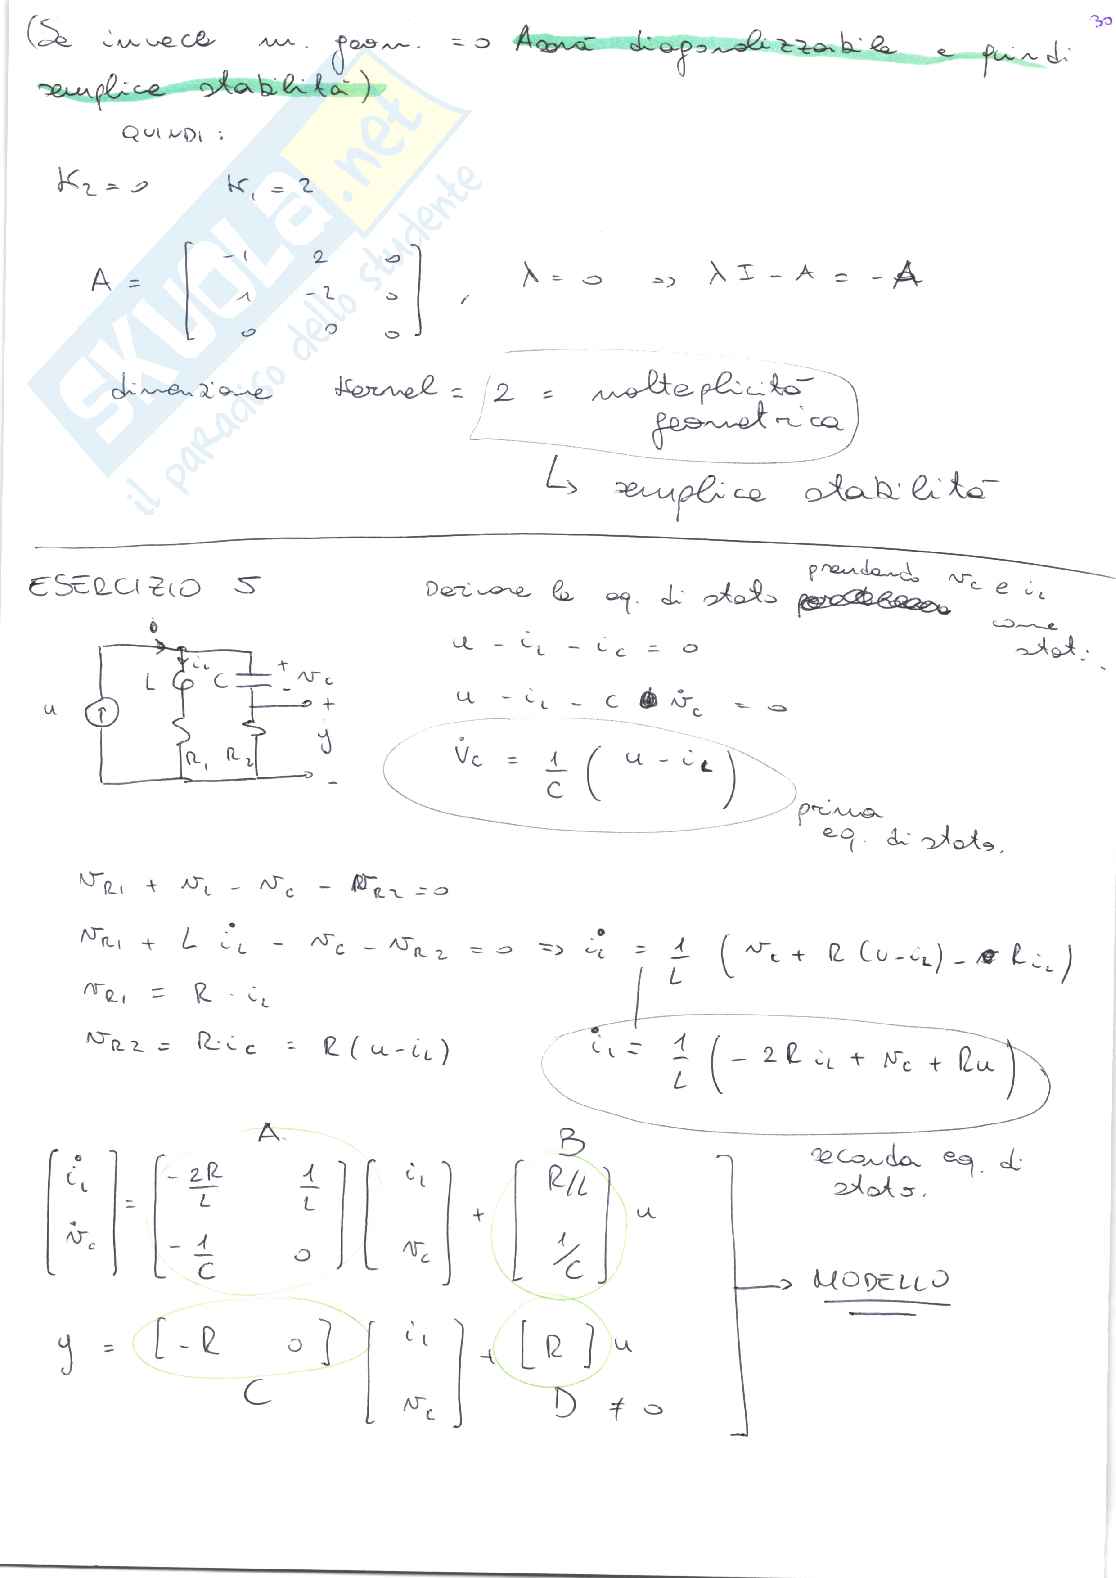 30
(Se invece m. geom. => A sarà diagonalizzabile e quindi
semplice stabilità)
QUINDI:
K2 = 0 K1 = 2
A = [ -1 2 0 , λ = 0 => λI - A = -A
1 -2 0
0 0 0 ]
dimensione Kernel = 2 = molteplicità
geometrica
↳ semplice stabilità
ESERCIZIO 5
Derivare le eq. di stato prendendo vc e iL
come
stati.
u - iL - ic = 0
u - iL - C v̇c = 0
v̇c = 1/C ( u - iL )
prima
eq. di stato.
u L iL C + - vc + y - R1 R2
vR1 + vL - vc - vR2 = 0
vR1 + L i̇L - vc - vR2 = 0 => i̇L = 1/L ( vc + R (u - iL) - R iL )
vR1 = R · iL
vR2 = R·ic = R ( u - iL )
i̇L = 1/L ( - 2R iL + vc + Ru )
seconda eq. di
stato.
A B
[ i̇L v̇c ] = [ -2R/L 1/L -1/C 0 ] [ iL vc ] + [ R/L 1/C ] u
→ MODELLO
y = [ -R 0 ] [ iL vc ] + [ R ] u
C D ≠ 0
SKUOLA.net
il paradiso dello studente